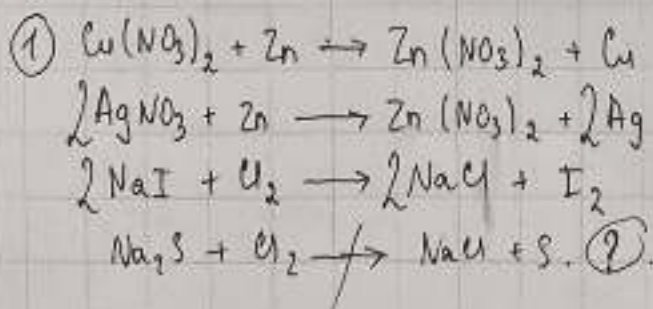 ① Cu(NO₃)₂ + Zn → Zn(NO₃)₂ + Cu
2AgNO₃ + Zn → Zn(NO₃)₂ + 2Ag
2NaI + Cl₂ → 2NaCl + I₂
Na₂S + Cl₂ ↛ NaCl + S. ?.